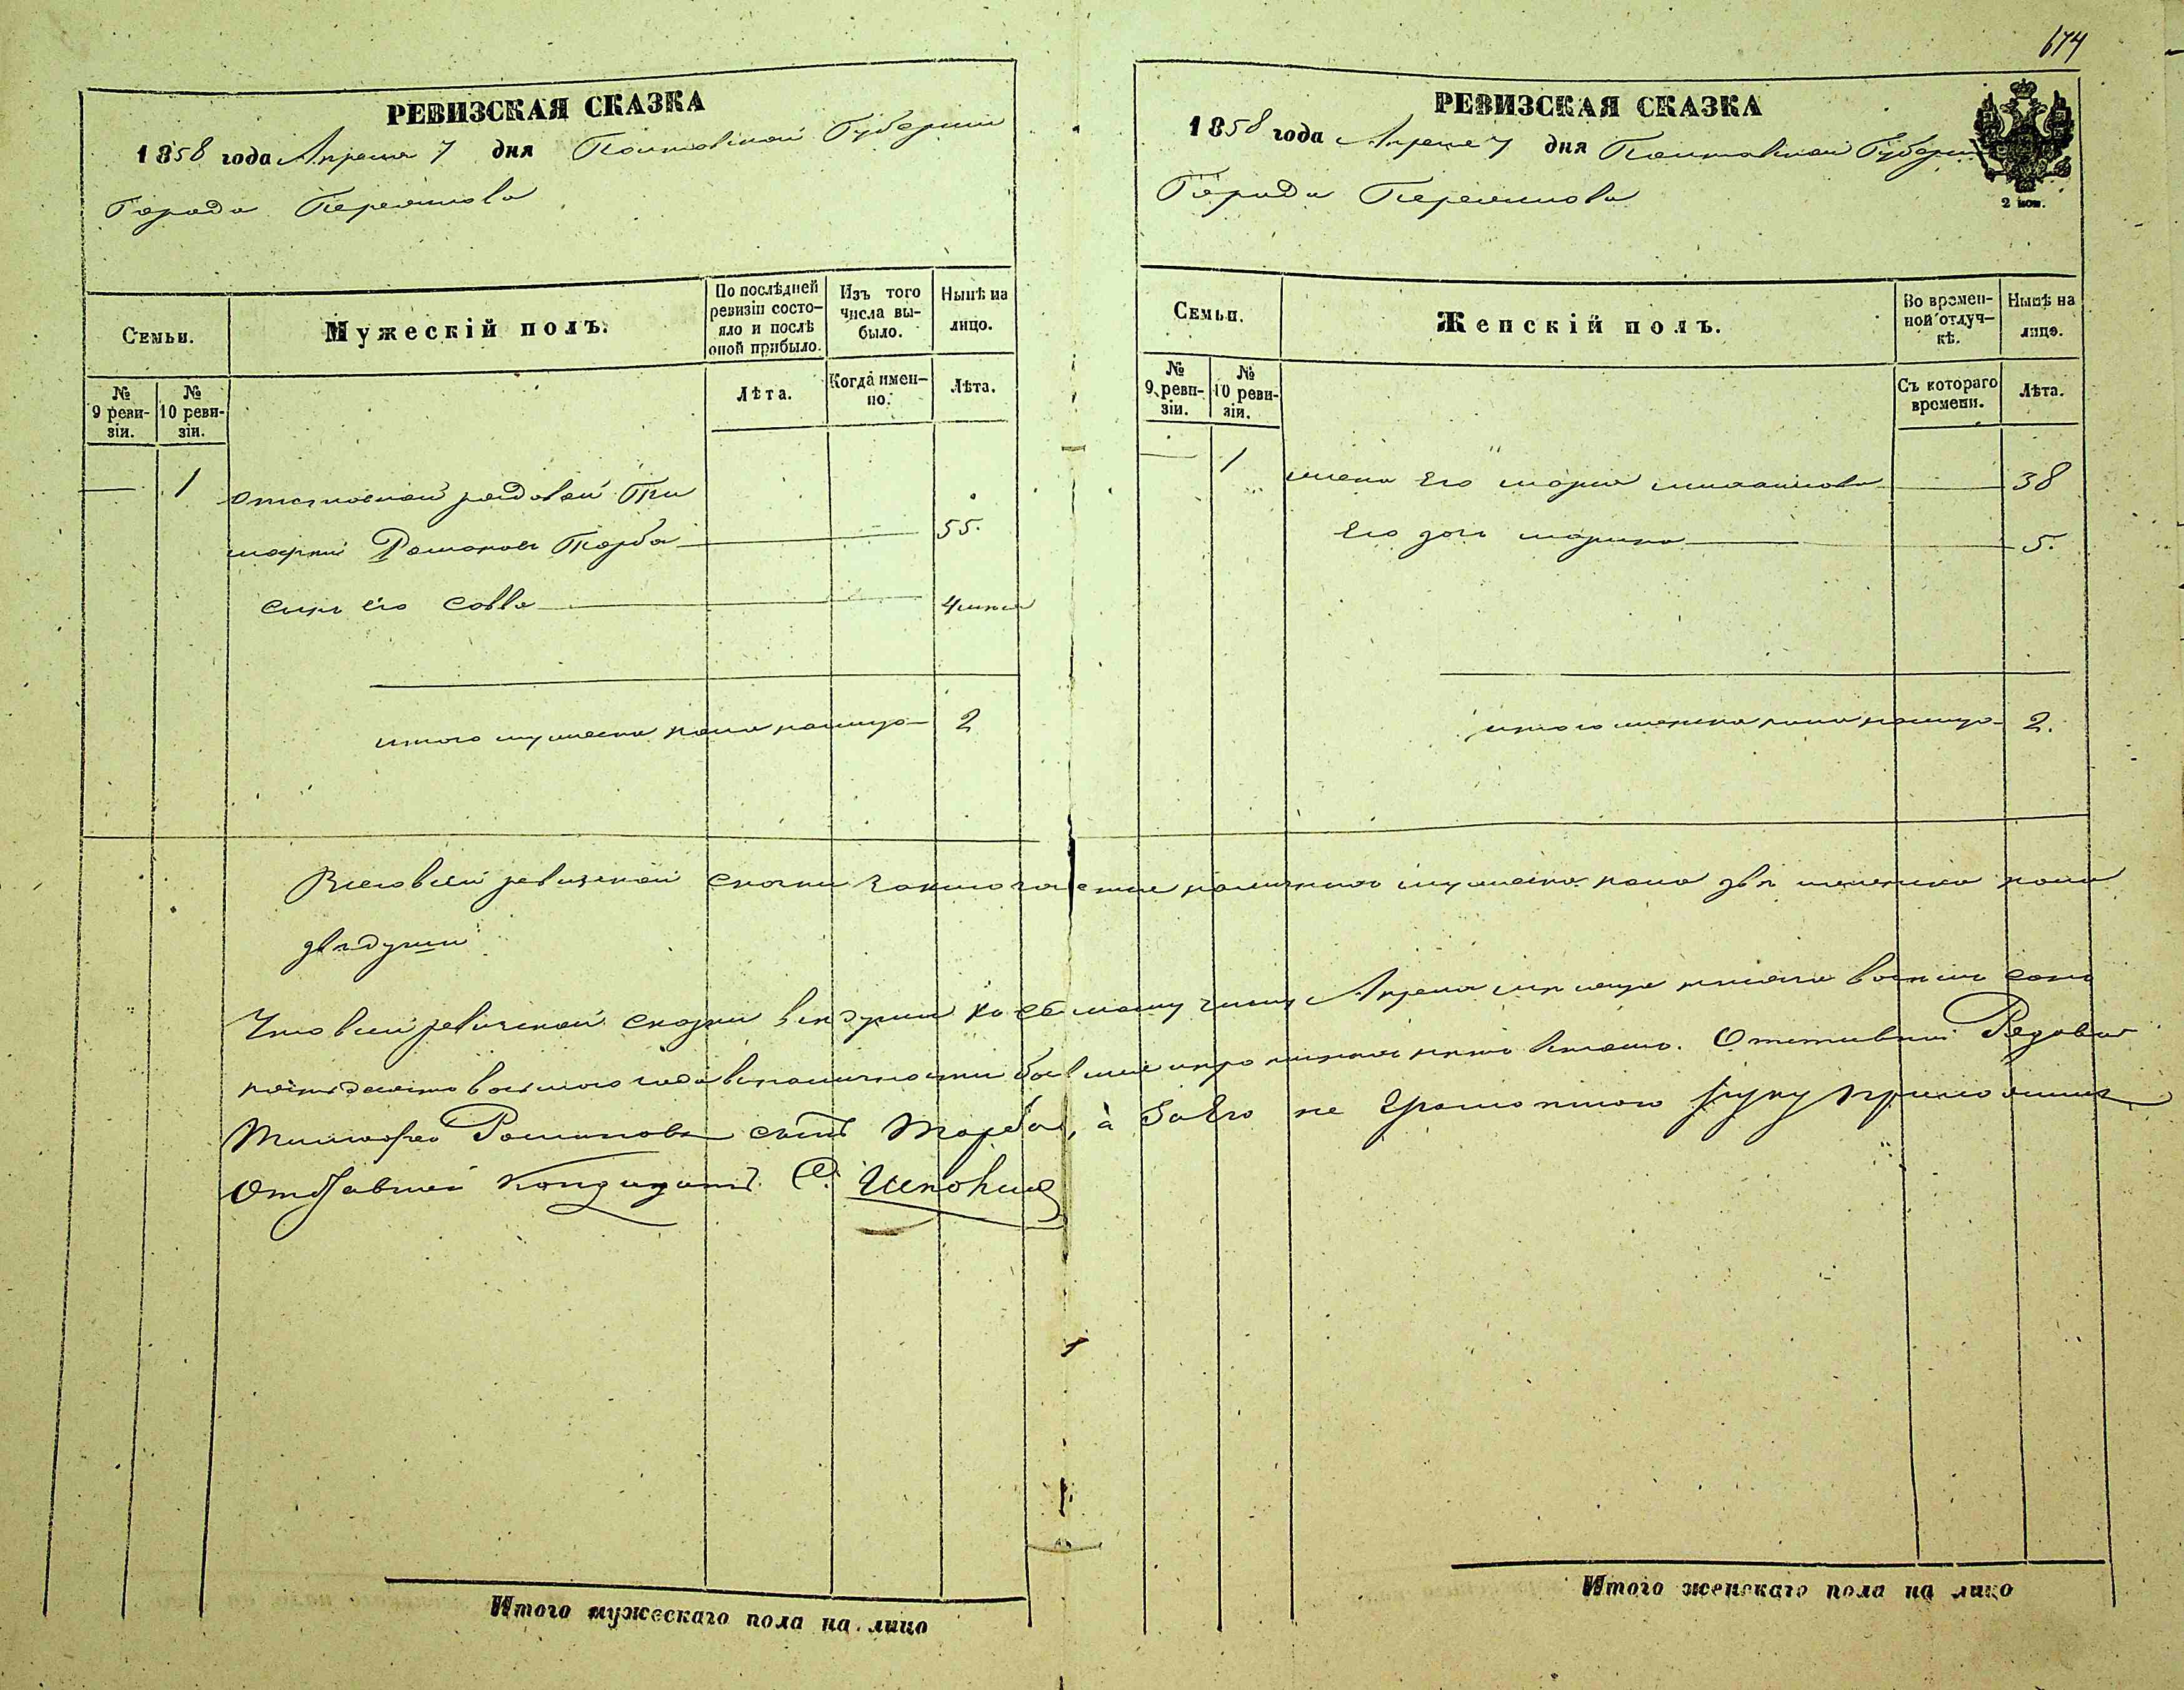 674
РЕВИЗСКАЯ СКАЗКА
1858 года Апреля 7 дня Полтавской Губернии
Города Переяслова
Семьи.
Мужескій полъ.
По послѣдней ревизіи состо-
яло и послѣ
оной прибыло.
Изъ того
числа вы-
было.
Нынѣ на
лицо.
№
9 реви-
зіи.
№
10 реви-
зіи.
Лѣта.
Когда имен-
но.
Лѣта.
— 1 отставной рядовой Ти
мофей Романовъ Торба 55.
сынъ его Савва 4
итого мужеска пола налицо 2
РЕВИЗСКАЯ СКАЗКА
1858 года Апреля 7 дня Полтавской Губернии
Города Переяслова
2 коп.
Семьи.
Женскій полъ.
Во времен-
ной отлуч-
кѣ.
Нынѣ на
лицо.
№
9 реви-
зіи.
№
10 реви-
зіи.
Съ котораго
времени.
Лѣта.
— 1 жена его мария 38
его дочь марина 5.
итого женска пола налицо 2.
Всего в сей ревизской сказки наличних мужеска пола две женска пола
две души
Что в сей ревизской сказки все души по седмому числу Апреля месяца тисяча восимь сотъ
пятьдесять восмого года
Романовъ сынъ Торба, а за Его не Грамотного руку приложилъ
С.
Итого мужескаго пола на лицо
Итого женскаго пола на лицо